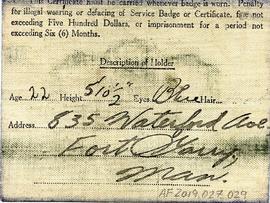 This Certificate must be carried whenever badge is worn. Penalty
for illegal wearing or defacing of Service Badge or Certificate, fine not
exceeding Five Hundred Dollars, or imprisonment for a period not
exceeding Six (6) Months.
Description of Holder
Age 22 Height 5'10½" Eyes Blue Hair
Address 835 Waterford Ave
Fort Garry
Man.
AF2019.027.029